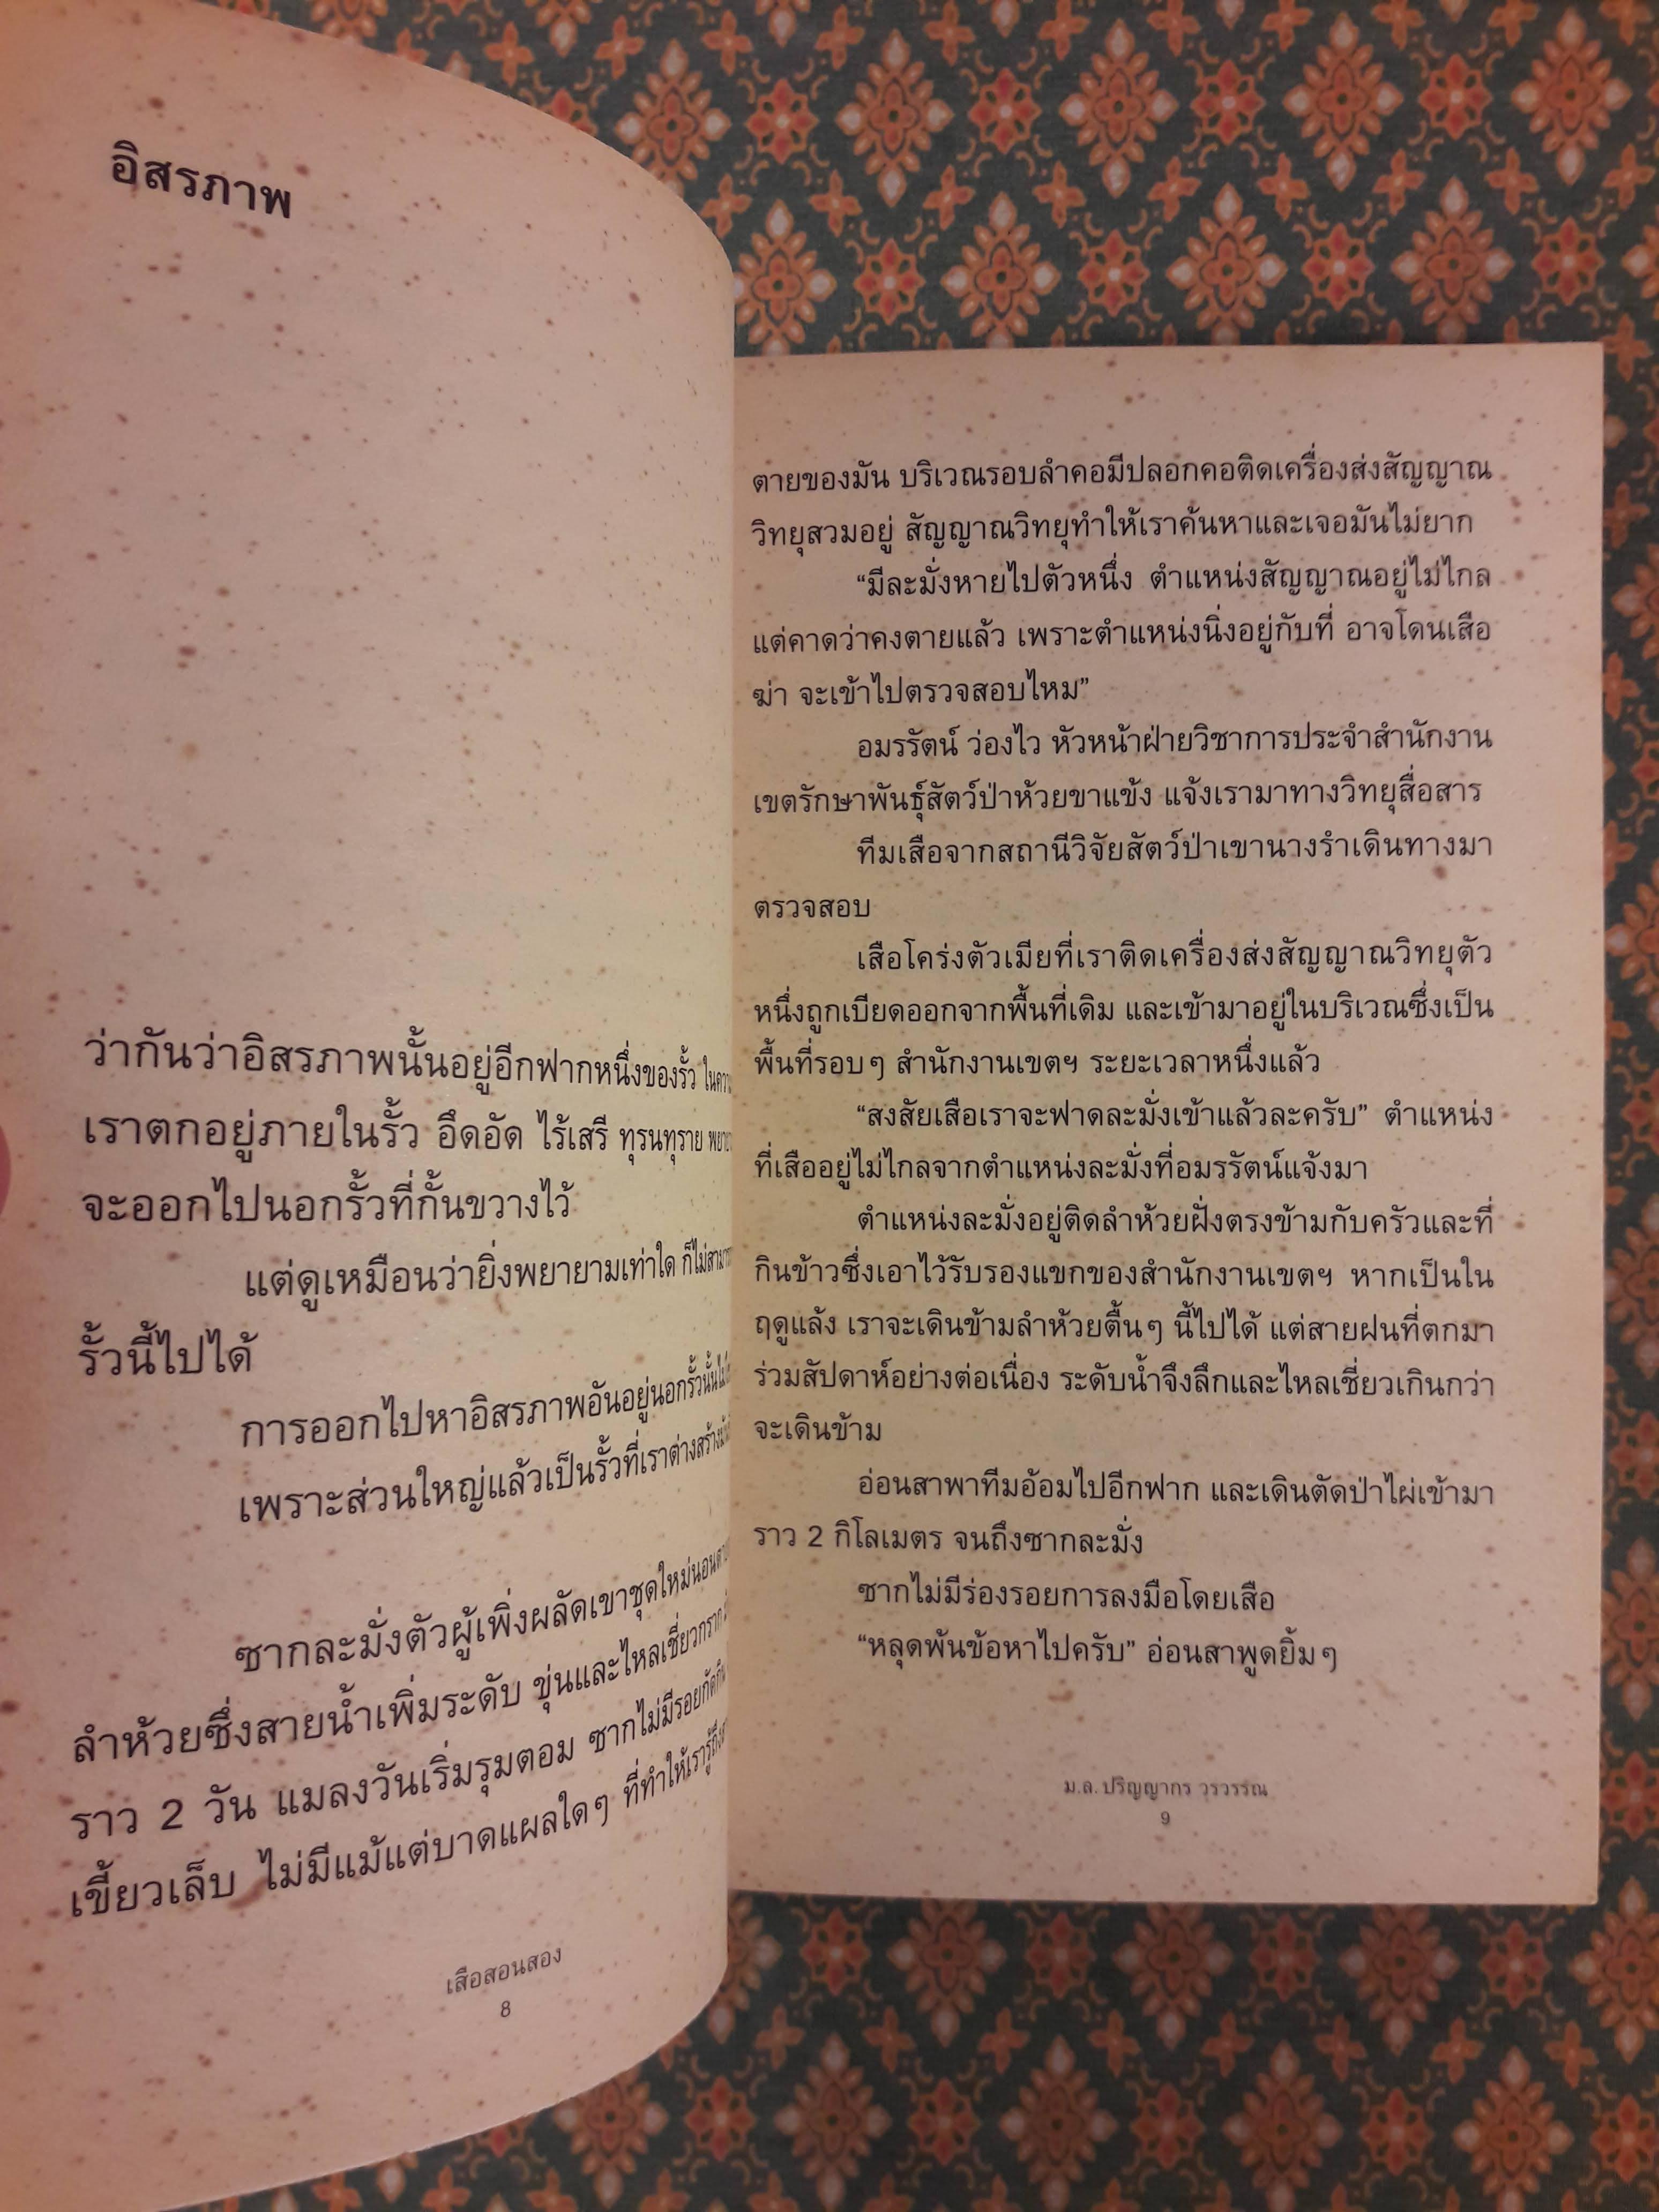 อิสรภาพ
ว่ากันว่าอิสรภาพนั้นอยู่อีกฟากหนึ่งของรั้ว
เราตกอยู่ภายในรั้ว อึดอัด ไร้เสรี ทุรนทุราย
จะออกไปนอกรั้วที่กั้นขวางไว้
แต่ดูเหมือนว่ายิ่งพยายามเท่าใด
รั้วนี้ไปได้
การออกไปหาอิสรภาพอันอยู่นอกรั้วนั้น
เพราะส่วนใหญ่แล้วเป็นรั้วที่เราต่างสร้าง
ซากละมั่งตัวผู้เพิ่งผลัดเขาชุดใหม่
ลำห้วยซึ่งสายน้ำเพิ่มระดับ ขุ่นและไหลเชี่ยวกราก
ราว 2 วัน แมลงวันเริ่มรุมตอม ซากไม่มีรอยกัด
เขี้ยวเล็บ ไม่มีแม้แต่บาดแผลใดๆ ที่ทำให้เรารู้ถึง
เสือสอนสอง
8
ตายของมัน บริเวณรอบลำคอมีปลอกคอติดเครื่องส่งสัญญาณ
วิทยุสวมอยู่ สัญญาณวิทยุทำให้เราค้นหาและเจอมันไม่ยาก
“มีละมั่งหายไปตัวหนึ่ง ตำแหน่งสัญญาณอยู่ไม่ไกล
แต่คาดว่าคงตายแล้ว เพราะตำแหน่งนิ่งอยู่กับที่ อาจโดนเสือ
ฆ่า จะเข้าไปตรวจสอบไหม”
อมรรัตน์ ว่องไว หัวหน้าฝ่ายวิชาการประจำสำนักงาน
เขตรักษาพันธุ์สัตว์ป่าห้วยขาแข้ง แจ้งเรามาทางวิทยุสื่อสาร
ทีมเสือจากสถานีวิจัยสัตว์ป่าเขานางรำเดินทางมา
ตรวจสอบ
เสือโคร่งตัวเมียที่เราติดเครื่องส่งสัญญาณวิทยุตัว
หนึ่งถูกเบียดออกจากพื้นที่เดิม และเข้ามาอยู่ในบริเวณซึ่งเป็น
พื้นที่รอบๆ สำนักงานเขตฯ ระยะเวลาหนึ่งแล้ว
“สงสัยเสือเราจะฟาดละมั่งเข้าแล้วละครับ” ตำแหน่ง
ที่เสืออยู่ไม่ไกลจากตำแหน่งละมั่งที่อมรรัตน์แจ้งมา
ตำแหน่งละมั่งอยู่ติดลำห้วยฝั่งตรงข้ามกับครัวและที่
กินข้าวซึ่งเอาไว้รับรองแขกของสำนักงานเขตฯ หากเป็นใน
ฤดูแล้ง เราจะเดินข้ามลำห้วยตื้นๆ นี้ไปได้ แต่สายฝนที่ตกมา
ร่วมสัปดาห์อย่างต่อเนื่อง ระดับน้ำจึงลึกและไหลเชี่ยวเกินกว่า
จะเดินข้าม
อ่อนสาพาทีมอ้อมไปอีกฟาก และเดินตัดป่าไผ่เข้ามา
ราว 2 กิโลเมตร จนถึงซากละมั่ง
ซากไม่มีร่องรอยการลงมือโดยเสือ
“หลุดพ้นข้อหาไปครับ” อ่อนสาพูดยิ้มๆ
ม.ล. ปริญญากร วรวรรณ
9